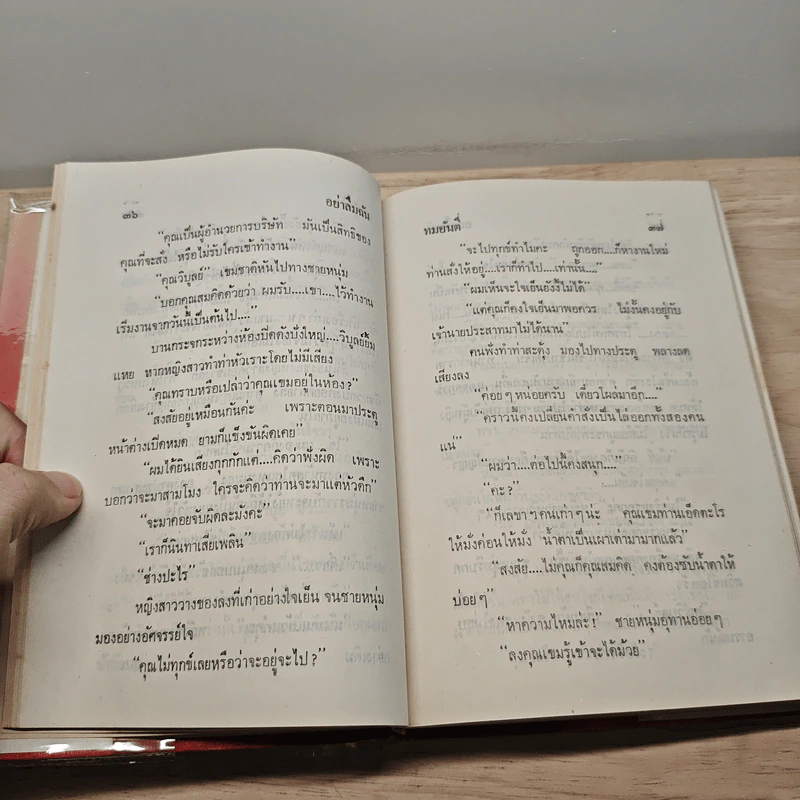 ๓๖
อย่าลืมฉัน
“คุณเป็นผู้อำนวยการบริษัท มันเป็นสิทธิของ
คุณที่จะสั่ง หรือไม่รับใครเข้าทำงาน”
“คุณวิบูลย์” เขมชาติหันไปทางชายหนุ่ม
“บอกคุณสมคิดด้วยว่า ผมรับ....เขา....ไว้ทำงาน
เริ่มงานจากวันนี้เป็นต้นไป....”
บานกระจกระหว่างห้องปิดดังปังใหญ่....วิบูลย์ยิ้ม
แหย หากหญิงสาวทำท่าหัวเราะโดยไม่มีเสียง
“คุณทราบหรือเปล่าว่าคุณเขมอยู่ในห้อง?”
“สงสัยอยู่เหมือนกันค่ะ เพราะตอนมาประตู
หน้าต่างเปิดหมด ยามก็แข็งขันผิดเคย”
“ผมได้ยินเสียงกุกกักแต่....คิดว่าฟังผิด เพราะ
บอกว่าจะมาสามโมง ใครจะคิดว่าท่านจะมาแต่หัวดึก”
“จะมาคอยจับผิดละมังคะ”
“เราก็นินทาเสียเพลิน”
“ช่างปะไร”
หญิงสาววางของลงที่เก่าอย่างใจเย็น จนชายหนุ่ม
มองอย่างอัศจรรย์ใจ
“คุณไม่ทุกข์เลยหรือว่าจะอยู่จะไป?”
ทมยันตี
๓๗
“จะไปทุกข์ทำไมคะ ถูกออก....ก็หางานใหม่
ท่านสั่งให้อยู่....เราก็ทำไป....เท่านั้น....”
“ผมเห็นจะใจเย็นยังงี้ไม่ได้”
“แต่คุณก็คงใจเย็นมาพอควร ไม่งั้นคงอยู่กับ
เจ้านายประสาทมาไม่ได้นาน”
คนฟังทำท่าสะดุ้ง มองไปทางประตู พลางลด
เสียงลง
“ค่อยๆ หน่อยครับ เดี๋ยวโผล่มาอีก....”
“คราวนี้คงเปลี่ยนคำสั่งเป็นไล่ออกทั้งสองคน
แน่”
“ผมว่า....ต่อไปนี้คงสนุก....”
“คะ?”
“ก็เลขาๆ คนเก่าๆ น่ะ คุณเขมท่านเอ็ดตะโร
ให้มั่งค่อนให้มั่ง น้ำตาเป็นเผาเต่ามามากแล้ว”
“สงสัย....ไม่คุณก็คุณสมคิด คงต้องซับน้ำตาให้
บ่อยๆ”
“หาความไหมล่ะ!” ชายหนุ่มอุทานอ่อยๆ
“ลงคุณเขมรู้เข้าจะได้ม้วย”